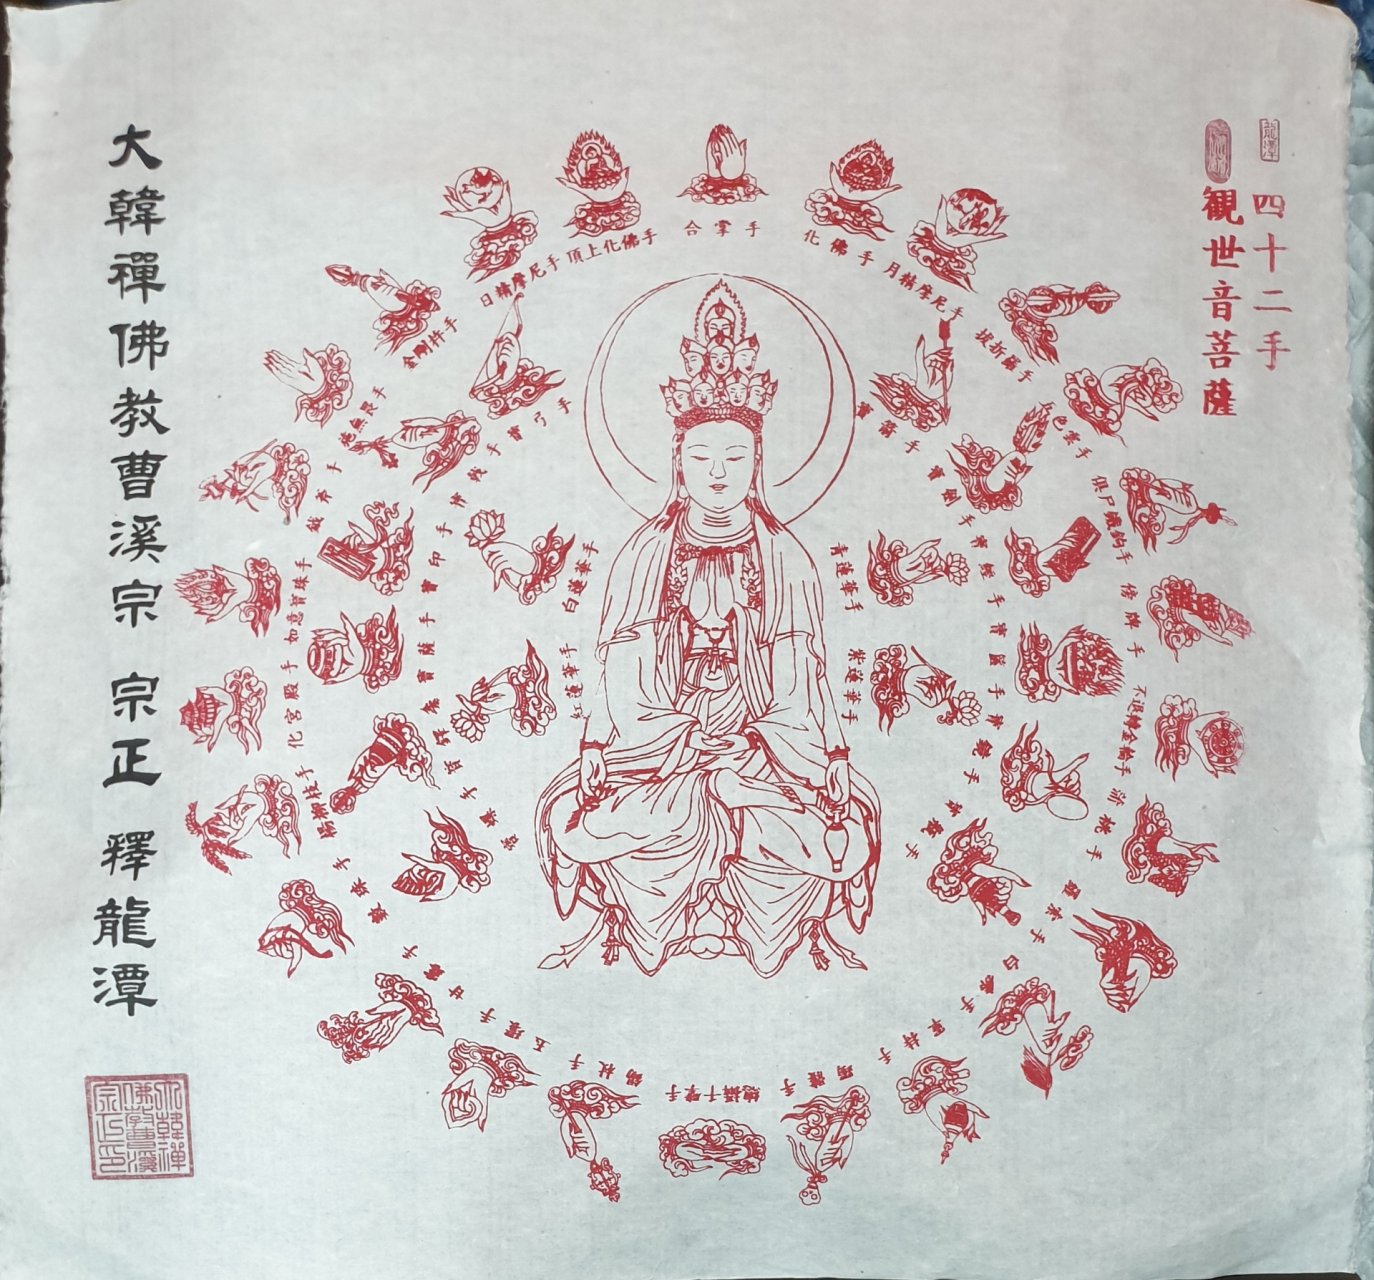 龍潭
四十二手
観世音菩薩
合掌手
化佛手
月精摩尼手
拔折羅手
色雲手
俱尸鐵鉤手
傍牌手
不退轉金輪手
羂索手
白拂手
軍持手
髑髏手
總攝千臂手
錫杖手
玉環手
甘露手
數珠手
楊柳枝手
化宮殿手
如意寶珠手
越斧手
施無畏手
金剛杵手
日精摩尼手
頂上化佛手
寶弓手
寶箭手
寶劍手
寶經手
寶鏡手
寶螺手
寶印手
白蓮華手
紅蓮華手
青蓮華手
紫蓮華手
大韓禪佛教曹溪宗 宗正 釋龍潭
大韓禪
佛教曹溪
宗正印